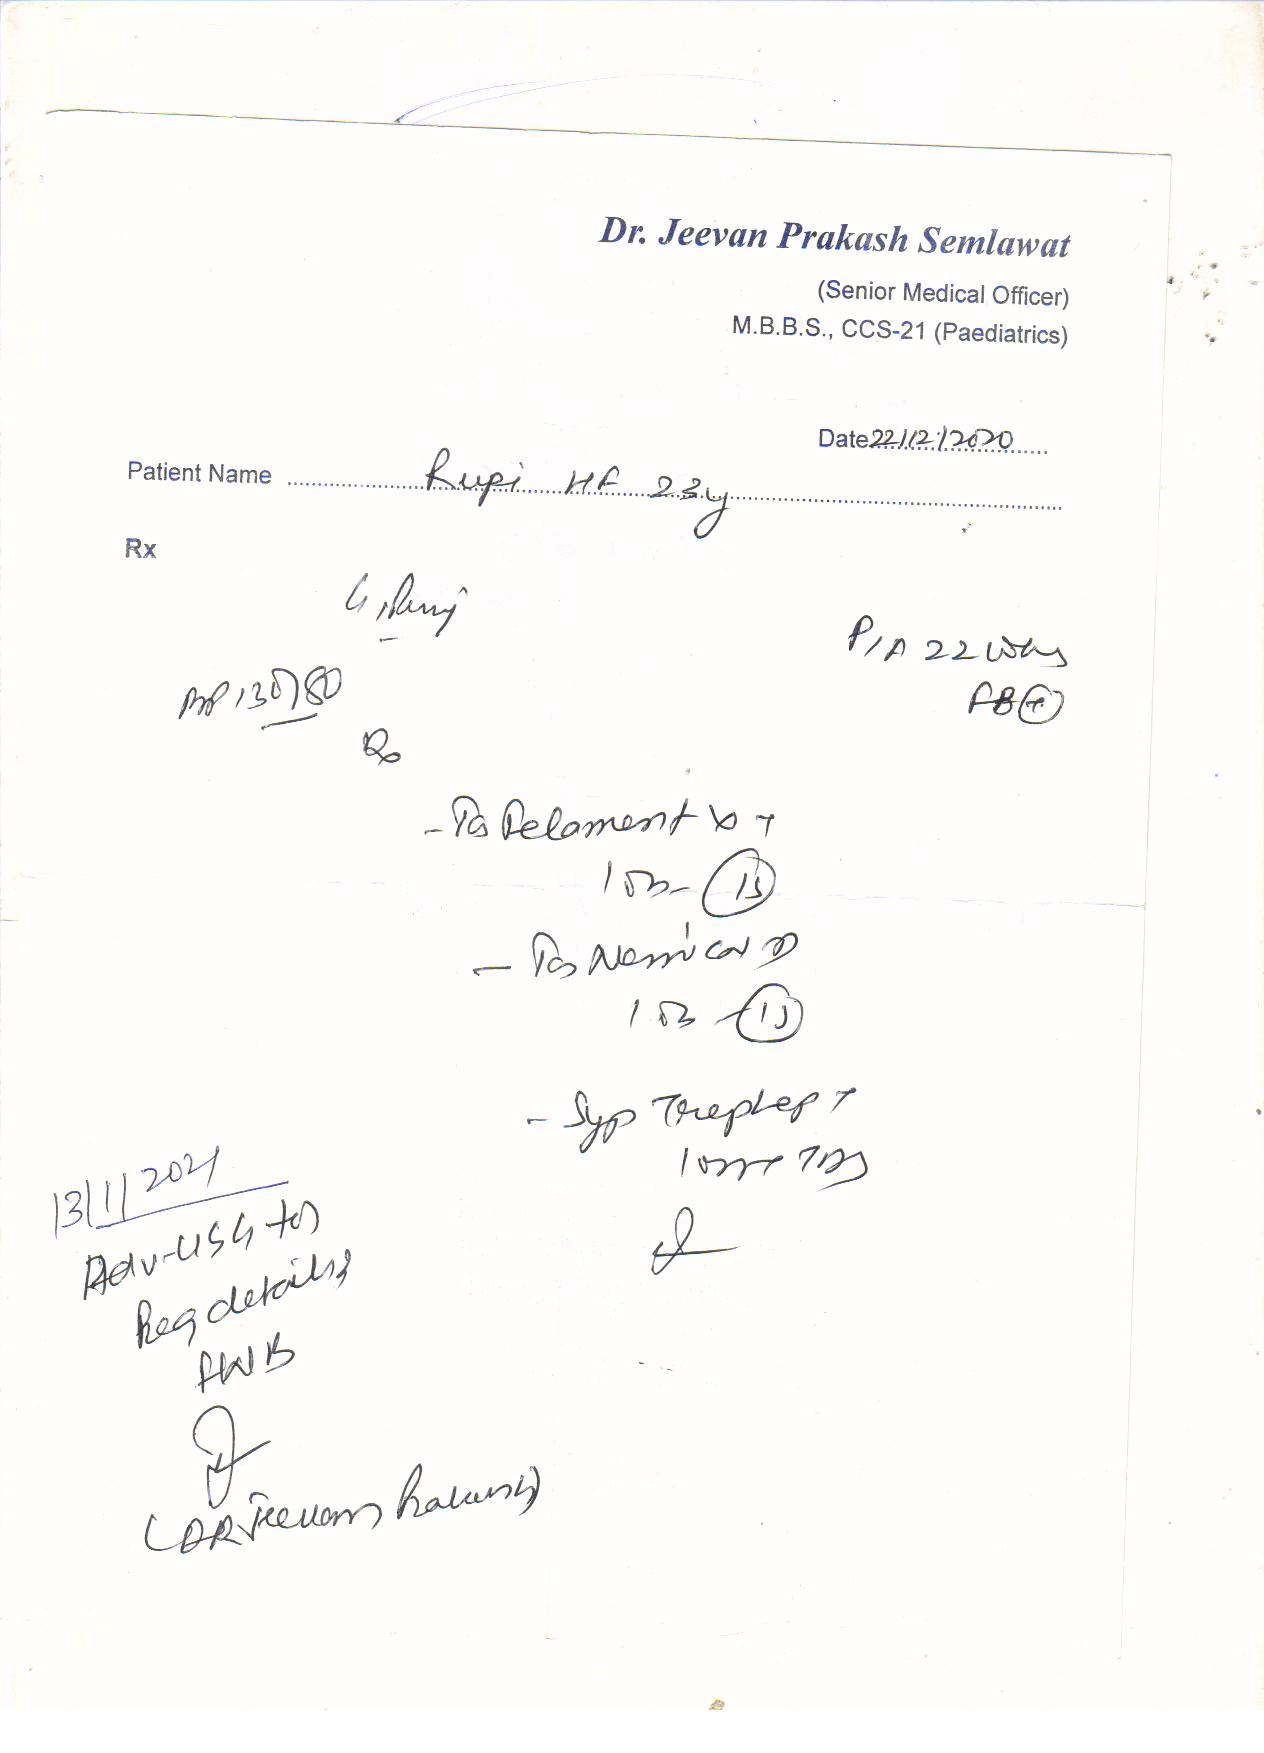 Dr. Jeevan Prakash Semlawat
(Senior Medical Officer)
M.B.B.S., CCS-21 (Paediatrics)
Date 22/12/2020
Patient Name Rupi HF 23y
Rx
P/A 22 wks
BP 130/80
FB +
Rx
- Tab
1 OD - 15
- Tab
1 OD - 15
- Syp
10ml TDS
13/1/2021
Adv-USG for
Reg details &
FWB
(DR Jeevan Prakash)